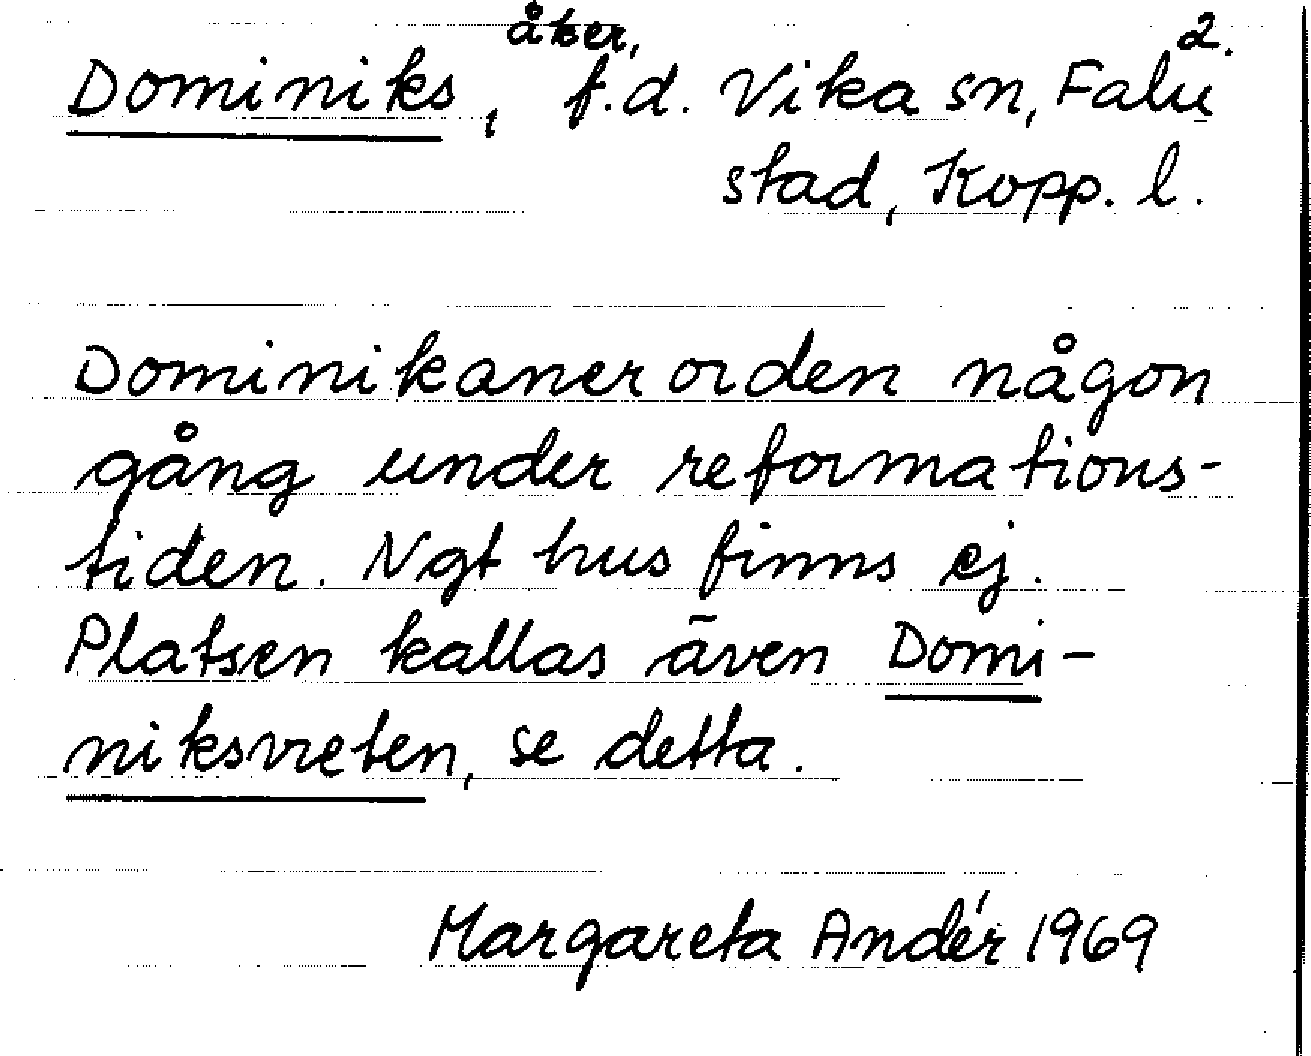 åker, 2.
Dominiks, f.d. Vika sn, Falu
stad, Kopp. l.
Dominikanerorden någon
gång under reformations-
tiden. Ngt hus finns ej.
Platsen kallas även Domi-
niksvreten, se detta.
Margareta Andér 1969